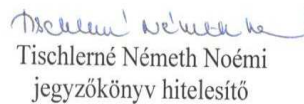 Tischlerné Németh No
Tischlerné Németh Noémi
jegyzőkönyv hitelesítő